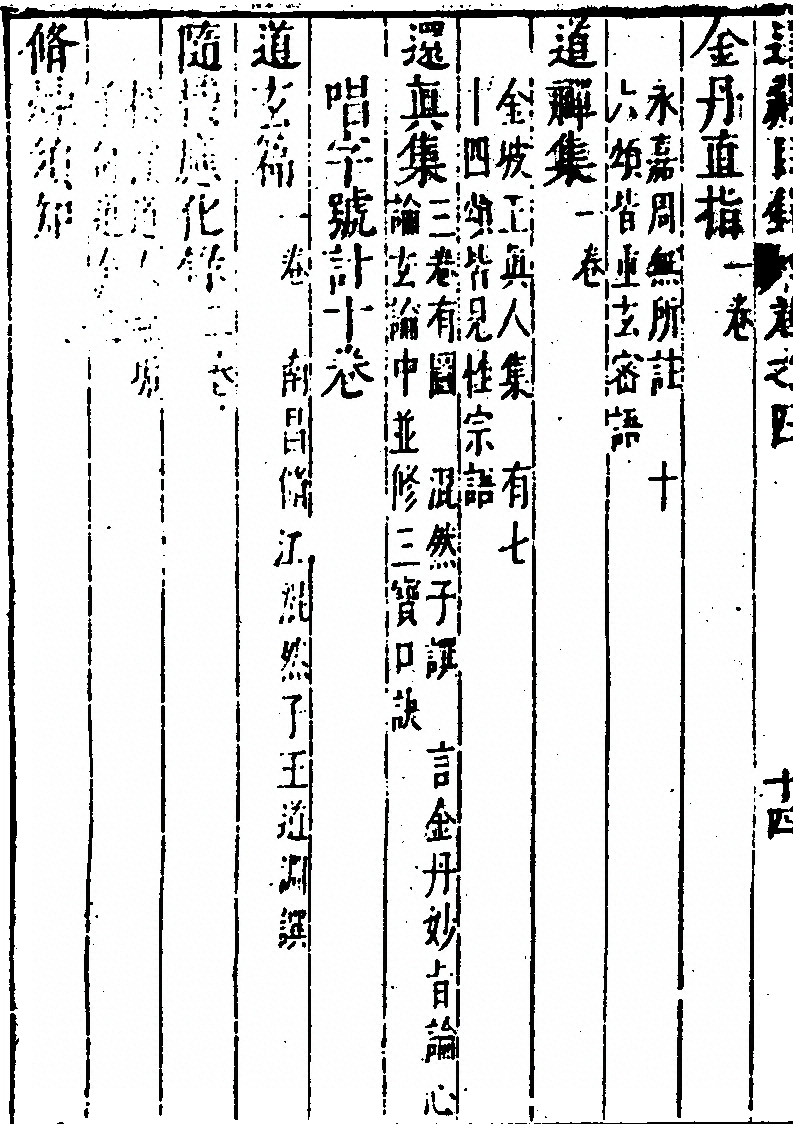 道藏目錄卷之四 十四
金丹直指 一卷
永嘉周無所註 十
六頌皆重玄密語
道禪集 一卷
金坡王眞人集 有七
十四頌皆見性宗語
還眞集 三卷有圖 混然子譔 言金丹妙旨論心
論玄論中並修三寶口訣
唱字號計十卷
道玄篇 一卷 南昌脩江混然子王道淵譔
隨機應化錄 二卷
道人
道
脩須知